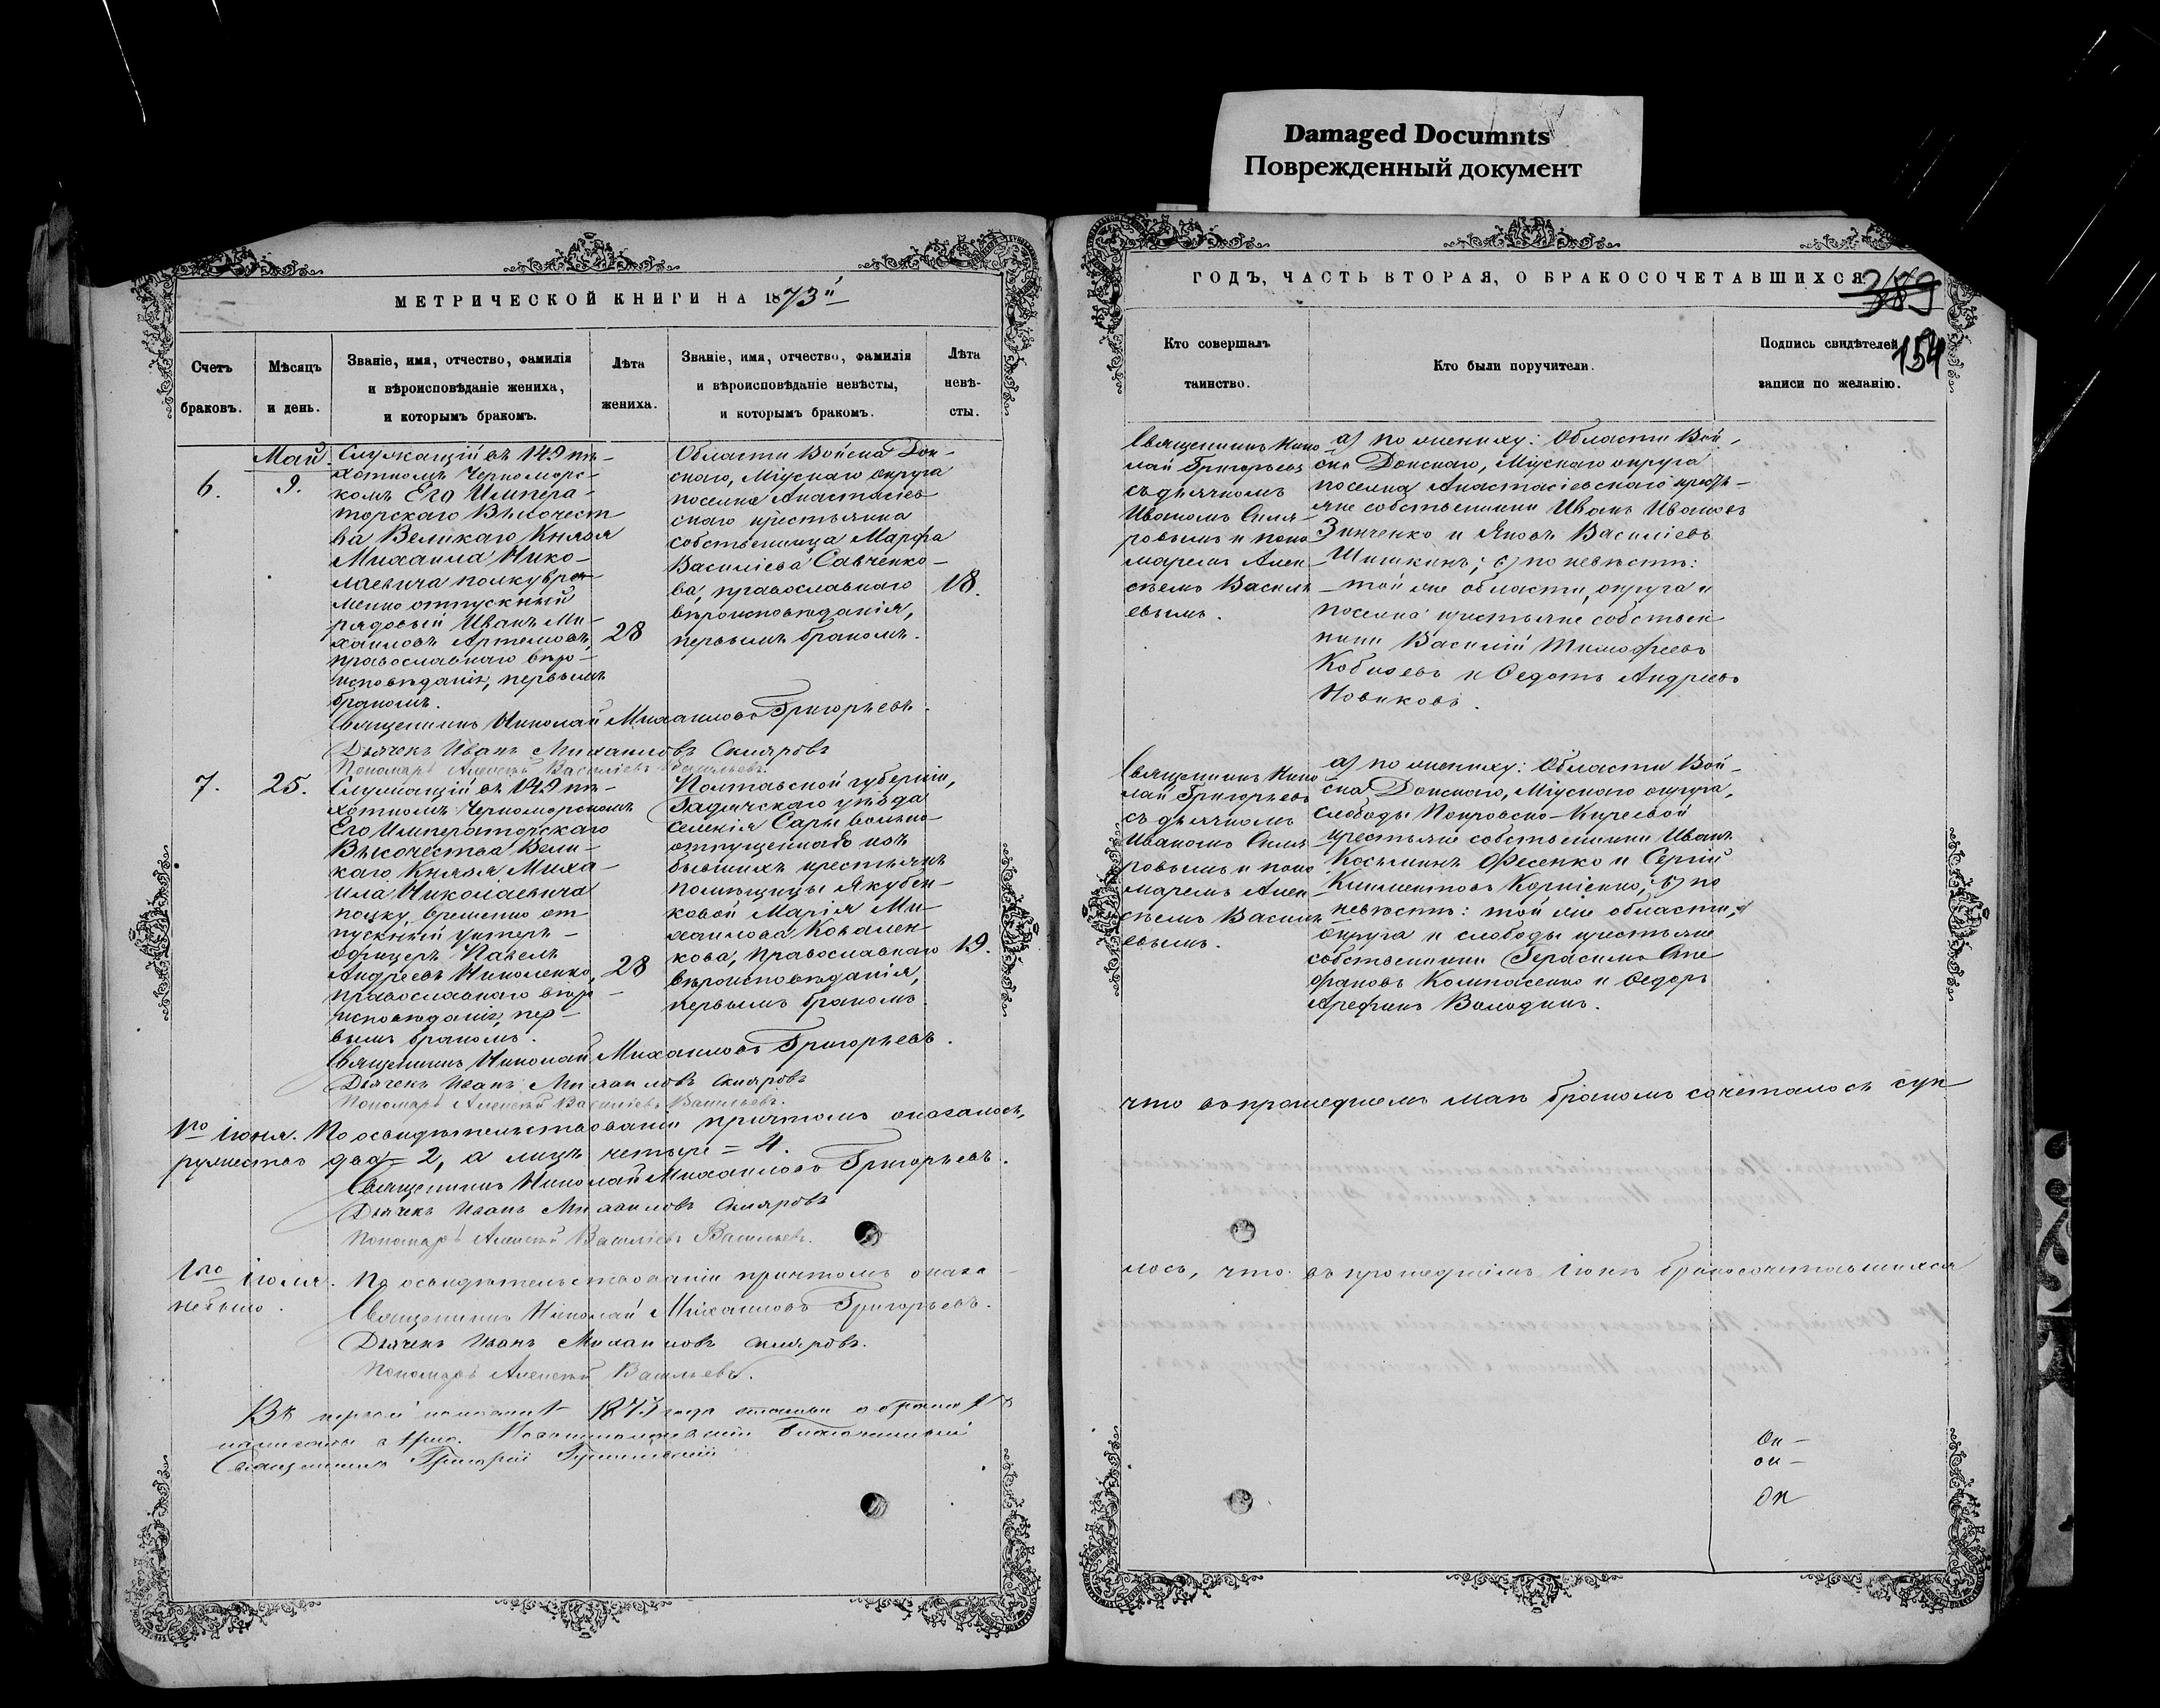 Damaged Documnts
Поврежденный документ
МЕТРИЧЕСКОЙ КНИГИ НА 1873й
Счетъ браковъ.
Мѣсяцъ и день.
Званіе, имя, отчество, фамилія
и вѣроисповѣданіе жениха,
и которымъ бракомъ.
Лѣта жениха.
Званіе, имя, отчество, фамилія
и вѣроисповѣданіе невѣсты,
и которымъ бракомъ.
Лѣта невѣ-
сты.
Май.
6.
9.
Служащій въ 149 пѣ-
хотномъ Черноморс-
комъ Его Импера-
торскаго Высочест
ва Великаго Князя
Михаила Нико-
лаевича полку вре-
менно отпускный
рядовый Иванъ Ми-
хаиловъ Артемовъ,
православнаго вѣро-
исповѣданія, первымъ
бракомъ.
28
Области Войска Дон-
скаго, Міускаго округа
поселка Анастасіев
скаго крестьянка
собственница Марфа
Василіева Савченко-
ва, православнаго
вѣроисповѣданія,
первымъ бракомъ.
18.
Священникъ Николай Михаиловъ Григорьевъ.
Дьячекъ Иванъ Михаиловъ Скляровъ
Пономарь Алексѣй Василіевъ Васильевъ.
7.
25.
Служащій въ 149 пѣ-
хотномъ Черноморскомъ
Его Императорскаго
Высочества Вели-
каго Князя Миха-
ила Николаевича
полку временно от-
пускный унтеръ-
офицеръ Павелъ
Андреевъ Николенко,
православнаго вѣро-
исповѣданія, пер-
вымъ бракомъ.
28
Полтавской губерніи,
Гадячскаго уѣзда
селенія Сары вольно-
отпущенная изъ
бывшихъ крестьянъ
помѣщицы Якубен-
ковой Марія Ми-
хаилова Ковален-
кова, православнаго
вѣроисповѣданія,
первымъ бракомъ.
19.
Священникъ Николай Михаиловъ Григорьевъ.
Дьячекъ Иванъ Михаиловъ Скляровъ
Пономарь Алексѣй Василіевъ Васильевъ.
1го Іюня. По освидѣтельствованіи причтомъ оказалось,
ружествъ два = 2, а лицъ четыре = 4.
Священникъ Николай Михаиловъ Григорьевъ.
Дьячекъ Иванъ Михаиловъ Скляровъ
Пономарь Алексѣй Василіевъ Васильевъ.
1го Іюля. По освидѣтельствованіи причтомъ оказа-
небыло.
Священникъ Николай Михаиловъ Григорьевъ.
Дьячекъ Иванъ Михаиловъ Скляровъ.
Пономарь Алексѣй Васильевъ.
Въ первой половинѣ 1873 года статьи о бракахъ
Благочинный
Священникъ Григорій
ГОДЪ, ЧАСТЬ ВТОРАЯ, О БРАКОСОЧЕТАВШИХСЯ
389
154
Кто совершалъ
таинство.
Кто были поручители.
Подпись свидѣтелей
записи по желанію.
Священникъ Нико
лай Григорьевъ
съ дьячкомъ
Иваномъ Скля-
ровымъ и поно
маремъ Алек-
сѣемъ Василь
евымъ.
а) по жениху: Области Вой-
ска Донскаго, Міускаго округа
поселка Анастасіевскаго кресть-
яне собственники Иванъ Ивановъ
Зинченко и Яковъ Василіевъ
Шишкинъ; б) по невѣстѣ:
той же области, округа и
поселка крестьяне собствен
ники Василій Тимофеевъ
Кобизевъ и Ѳедотъ Андреевъ
Новиковъ.
Священникъ Нико
лай Григорьевъ
съ дьячкомъ
Иваномъ Скля
ровымъ и поно
маремъ Алек-
сѣемъ Василь
евымъ.
а) по жениху: Области Вой-
ска Донскаго, Міускаго округа,
слободы Покровско-Киреевой
крестьяне собственники Иванъ
Косьминъ Фесенко и Сергій
Климентовъ Корніенко; б) по
невѣстѣ: той же области,
округа и слободы крестьяне
собственники Герасимъ Сте
фановъ Компасенко и Ѳедоръ
Арефинъ Володинъ.
что въ прошедшемъ маѣ бракомъ сочеталось суп
лось, что въ прошедшемъ Іюнѣ бракосочетавшихся